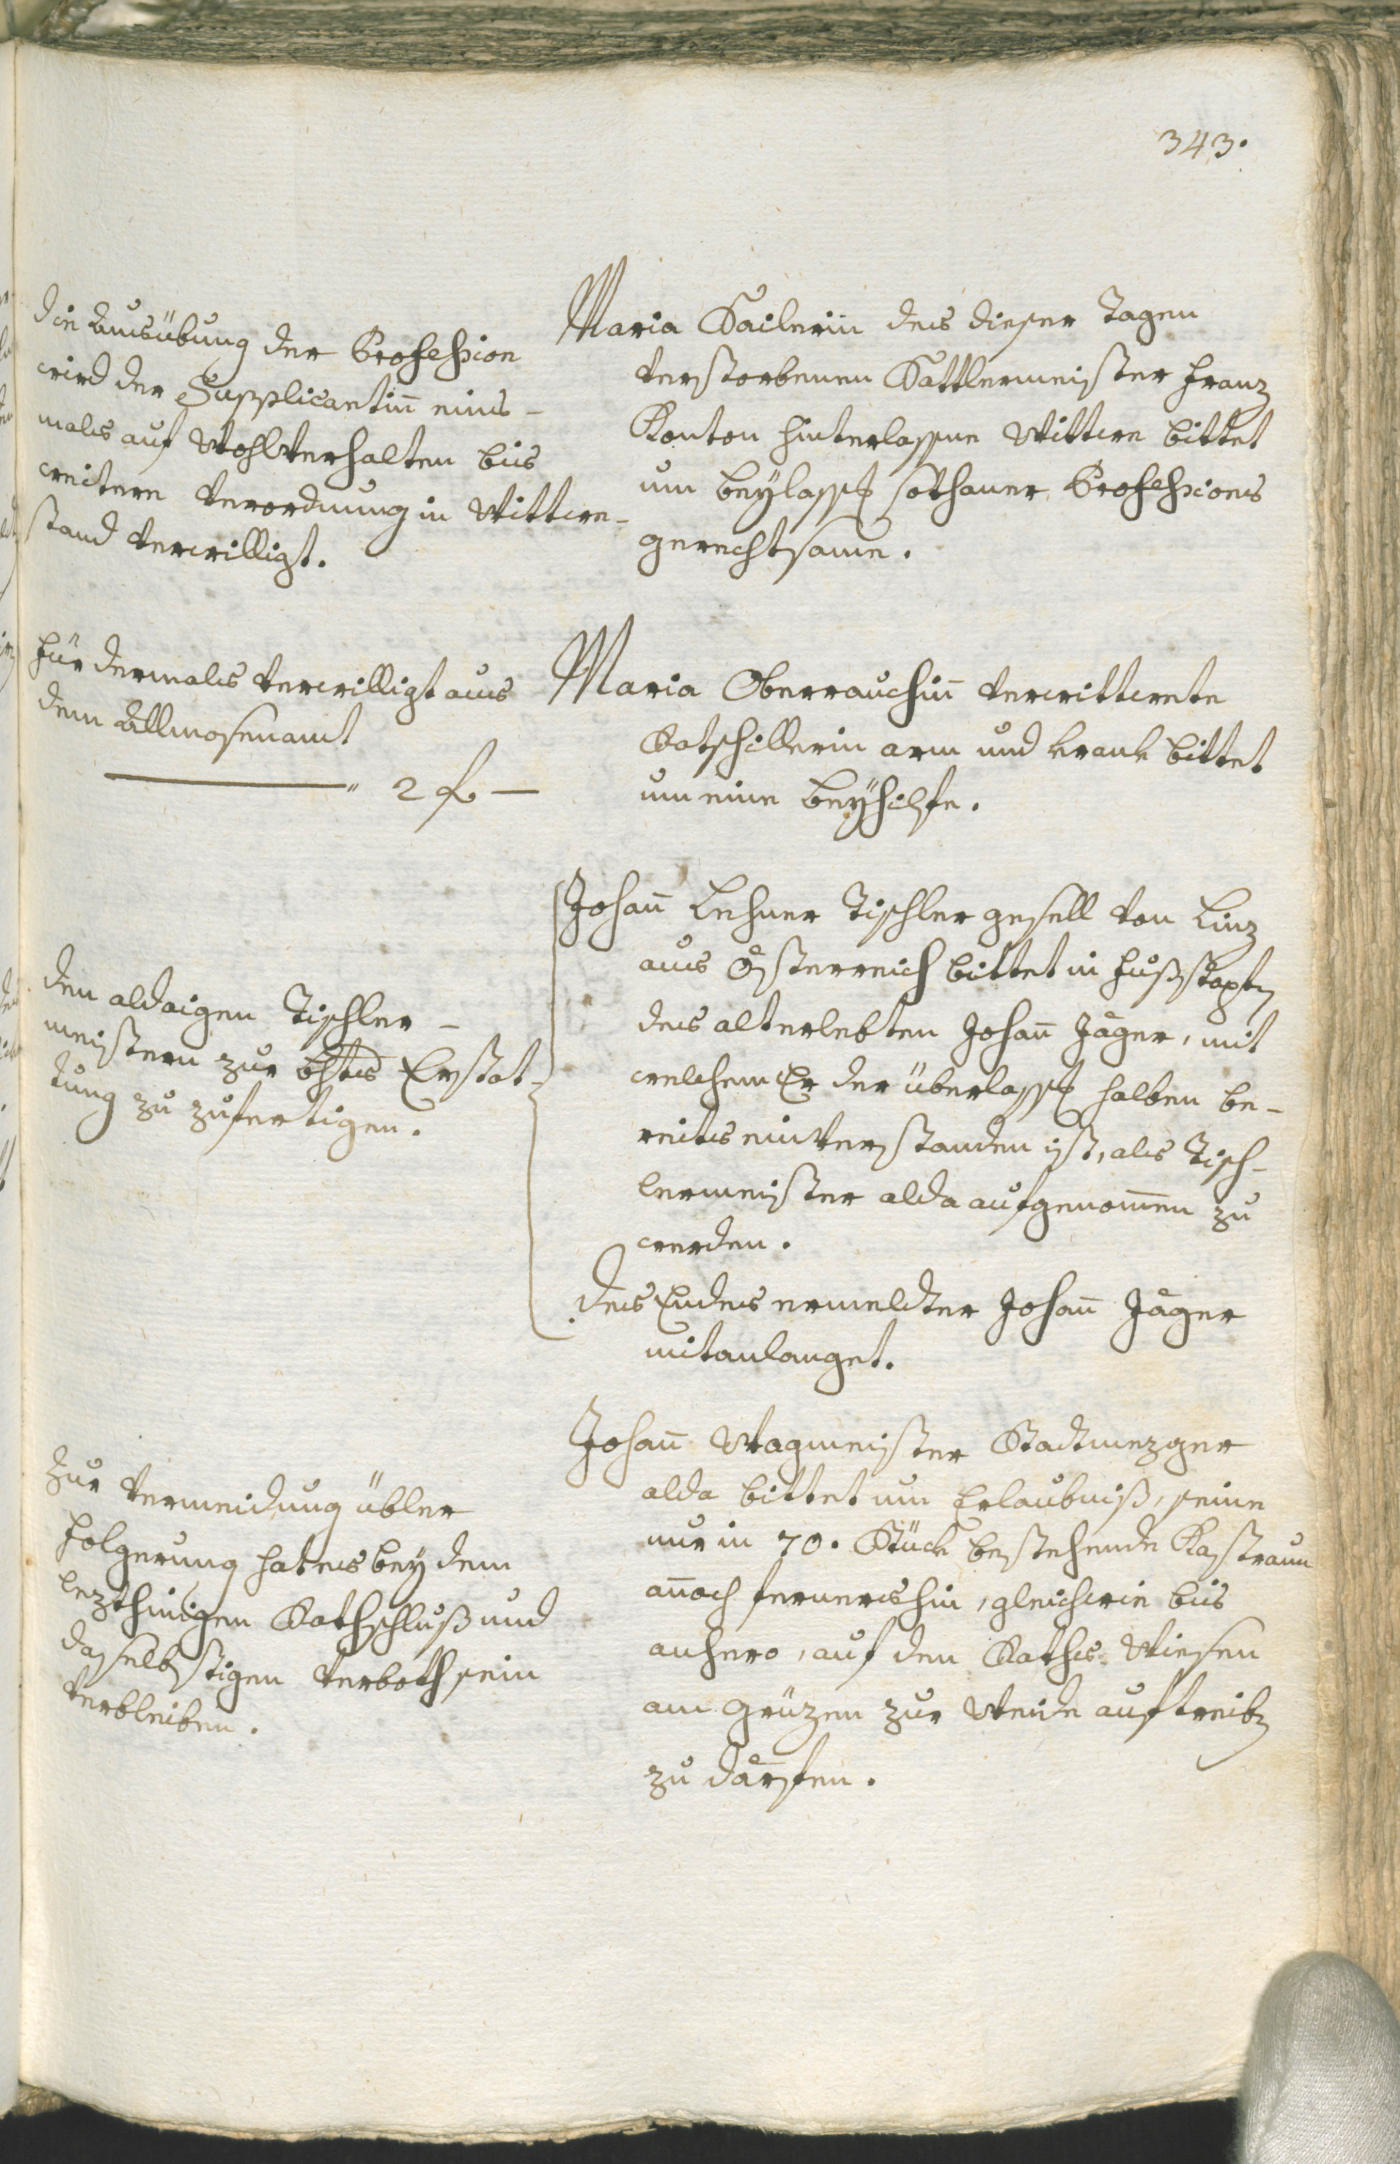 343.
Die Ausübung der Profession
wird der Supplicantin̅ eins-
mals auf Wohlverhalten bis
weitere Verordnung in Wittwe-
stand verwilligt.
Maria Sailerin des dieser Tagen
verstorbenen Sattlermeister Franz
Konton hinterlassne Wittwe bittet
um beylass sothaner Professions
gerechtsame.
Für dermals verwilligt aus
dem Allmosenamt
2 f —
Maria Oberrauchin̅ verwittwete
Botschillerin arm und krank bittet
um eine Beyhilfe.
Den aldaigen Tischler-
meistern zur Erstat-
tung zu zufertigen.
Johan̅ Lehner Tischlergesell von Linz
aus Österreich bittet in Fußstapfen
des alterlebten Johan̅ Jäger, mit
welchem Er der überlass halben be-
reits einverstanden ist, als Tisch-
lermeister alda aufgenom̅en zu
werden.
Des Endes ermeldter Johan̅ Jäger
mitanlanget.
Zur Vermeidung übler
Folgerung hat es bey dem
lezthinigen Rathschluß und
daselbstigen Verboth sein
verbleiben.
Johan̅ Wagmeister Stadtmezger
alda bittet um Erlaubniß, seine
nur in 70. Stück bestehende Kastraun
an̅och fernershin, gleichwie bis
anhero, auf den Raths Wiesen
am Grüzen zur Weide auftreiben
zu därfen.